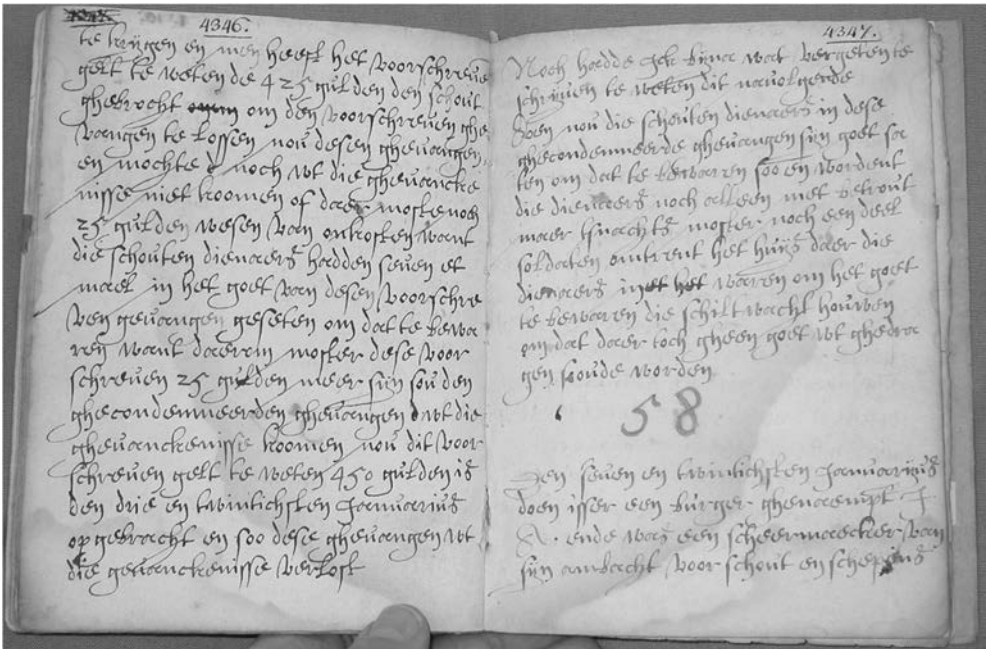 4346.
te krijgen en men heeft het voorschreve
gelt te weten de 425 gulden den schout
ghebrocht om den voorschreven ghe
vangen te lossen nou desen ghevangen
en mochte noch wt die ghevancke
nisse niet koomen of daer moste noch
25 gulden wesen van onkosten want
die schouten dienaers hadden seven et
mael in het goet van desen voorschre
ven gevangen geseten om dat te bewa
ren want daerom moster dese voor
schreven 25 gulden meer sijn sou den
ghecondemneerden ghevangen wt die
ghevanckenisse koomen nou dit voor
schreven gelt te weten 450 gulden is
den drie en twintichsten Januarius
op gebracht en soo dese ghevangen wt
die gevanckenisse verlost
4347.
Noch hadde ick bijna wat vergeten te
schrijven te weten dit navolgende
doen nou die schouten dienaers in dese
ghecondemneerde ghevangen sijn goet sa
ten om dat te bewaren soo en wordent
die dienaers noch alleen niet betrout
maer tsnachts moster noch een deel
soldaten omtrent het huijs daer die
dienaers in waren om het goet
te bewaren die schiltwacht houwen
om dat daer toch gheen goet wt ghedra
gen soude worden
58
Den seven en twintichsten Januarijus
doen isser een burger ghenaempt J.
A. ende was een scheermaecker van
sijn ambacht voor schout en schepens